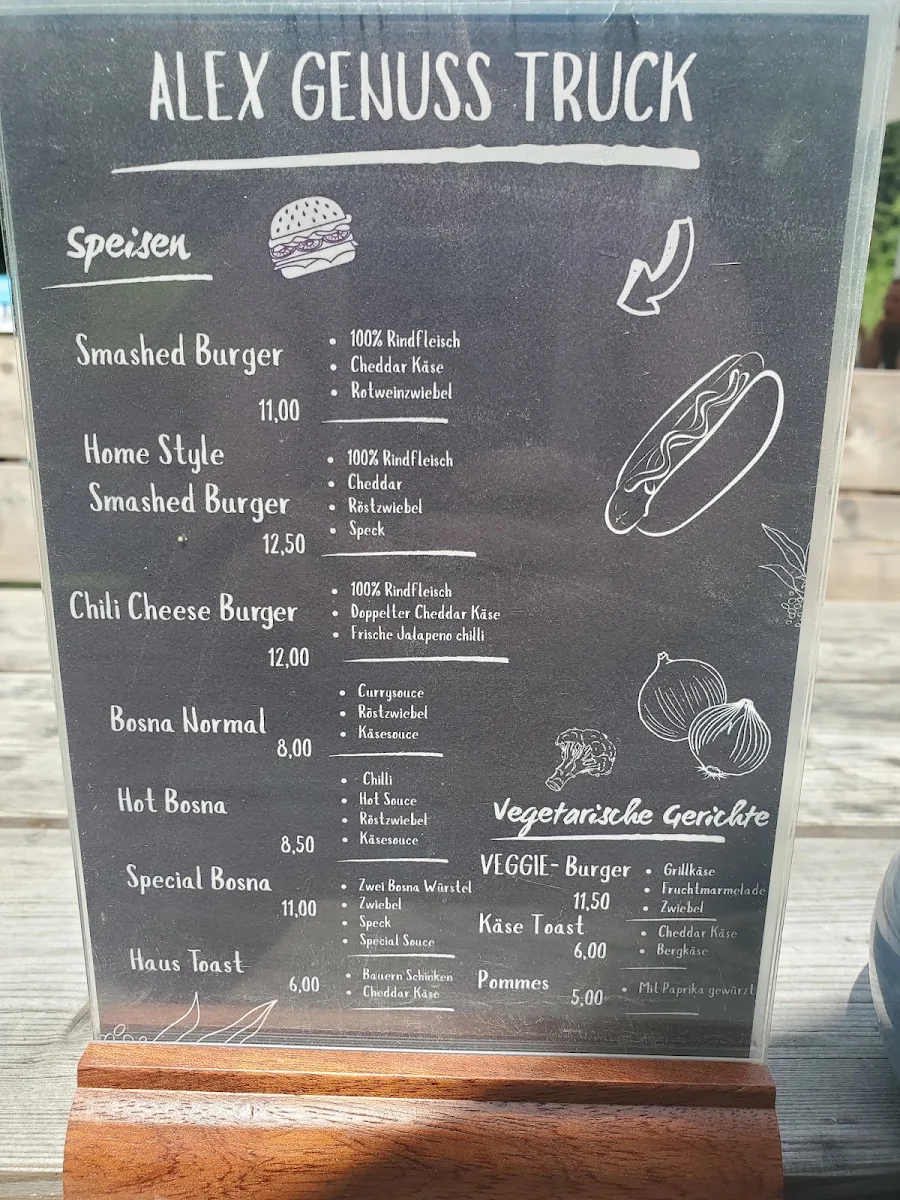 ALEX GENUSS TRUCK
Speisen
Smashed Burger
11,00
100% Rindfleisch
Cheddar Käse
Rotweinzwiebel
Home Style
Smashed Burger
12,50
100% Rindfleisch
Cheddar
Röstzwiebel
Speck
Chili Cheese Burger
12,00
100% Rindfleisch
Doppelter Cheddar Käse
Frische Jalapeno chilli
Bosna Normal
8,00
Currysouce
Röstzwiebel
Käsesouce
Hot Bosna
8,50
Chilli
Hot Souce
Röstzwiebel
Käsesouce
Special Bosna
11,00
Zwei Bosna Würstel
Zwiebel
Speck
Special Souce
Haus Toast
6,00
Bauern Schinken
Cheddar Käse
Vegetarische Gerichte
VEGGIE- Burger
11,50
Grillkäse
Fruchtmarmelade
Zwiebel
Käse Toast
6,00
Cheddar Käse
Bergkäse
Pommes
5,00
Mit Paprika gewürzt